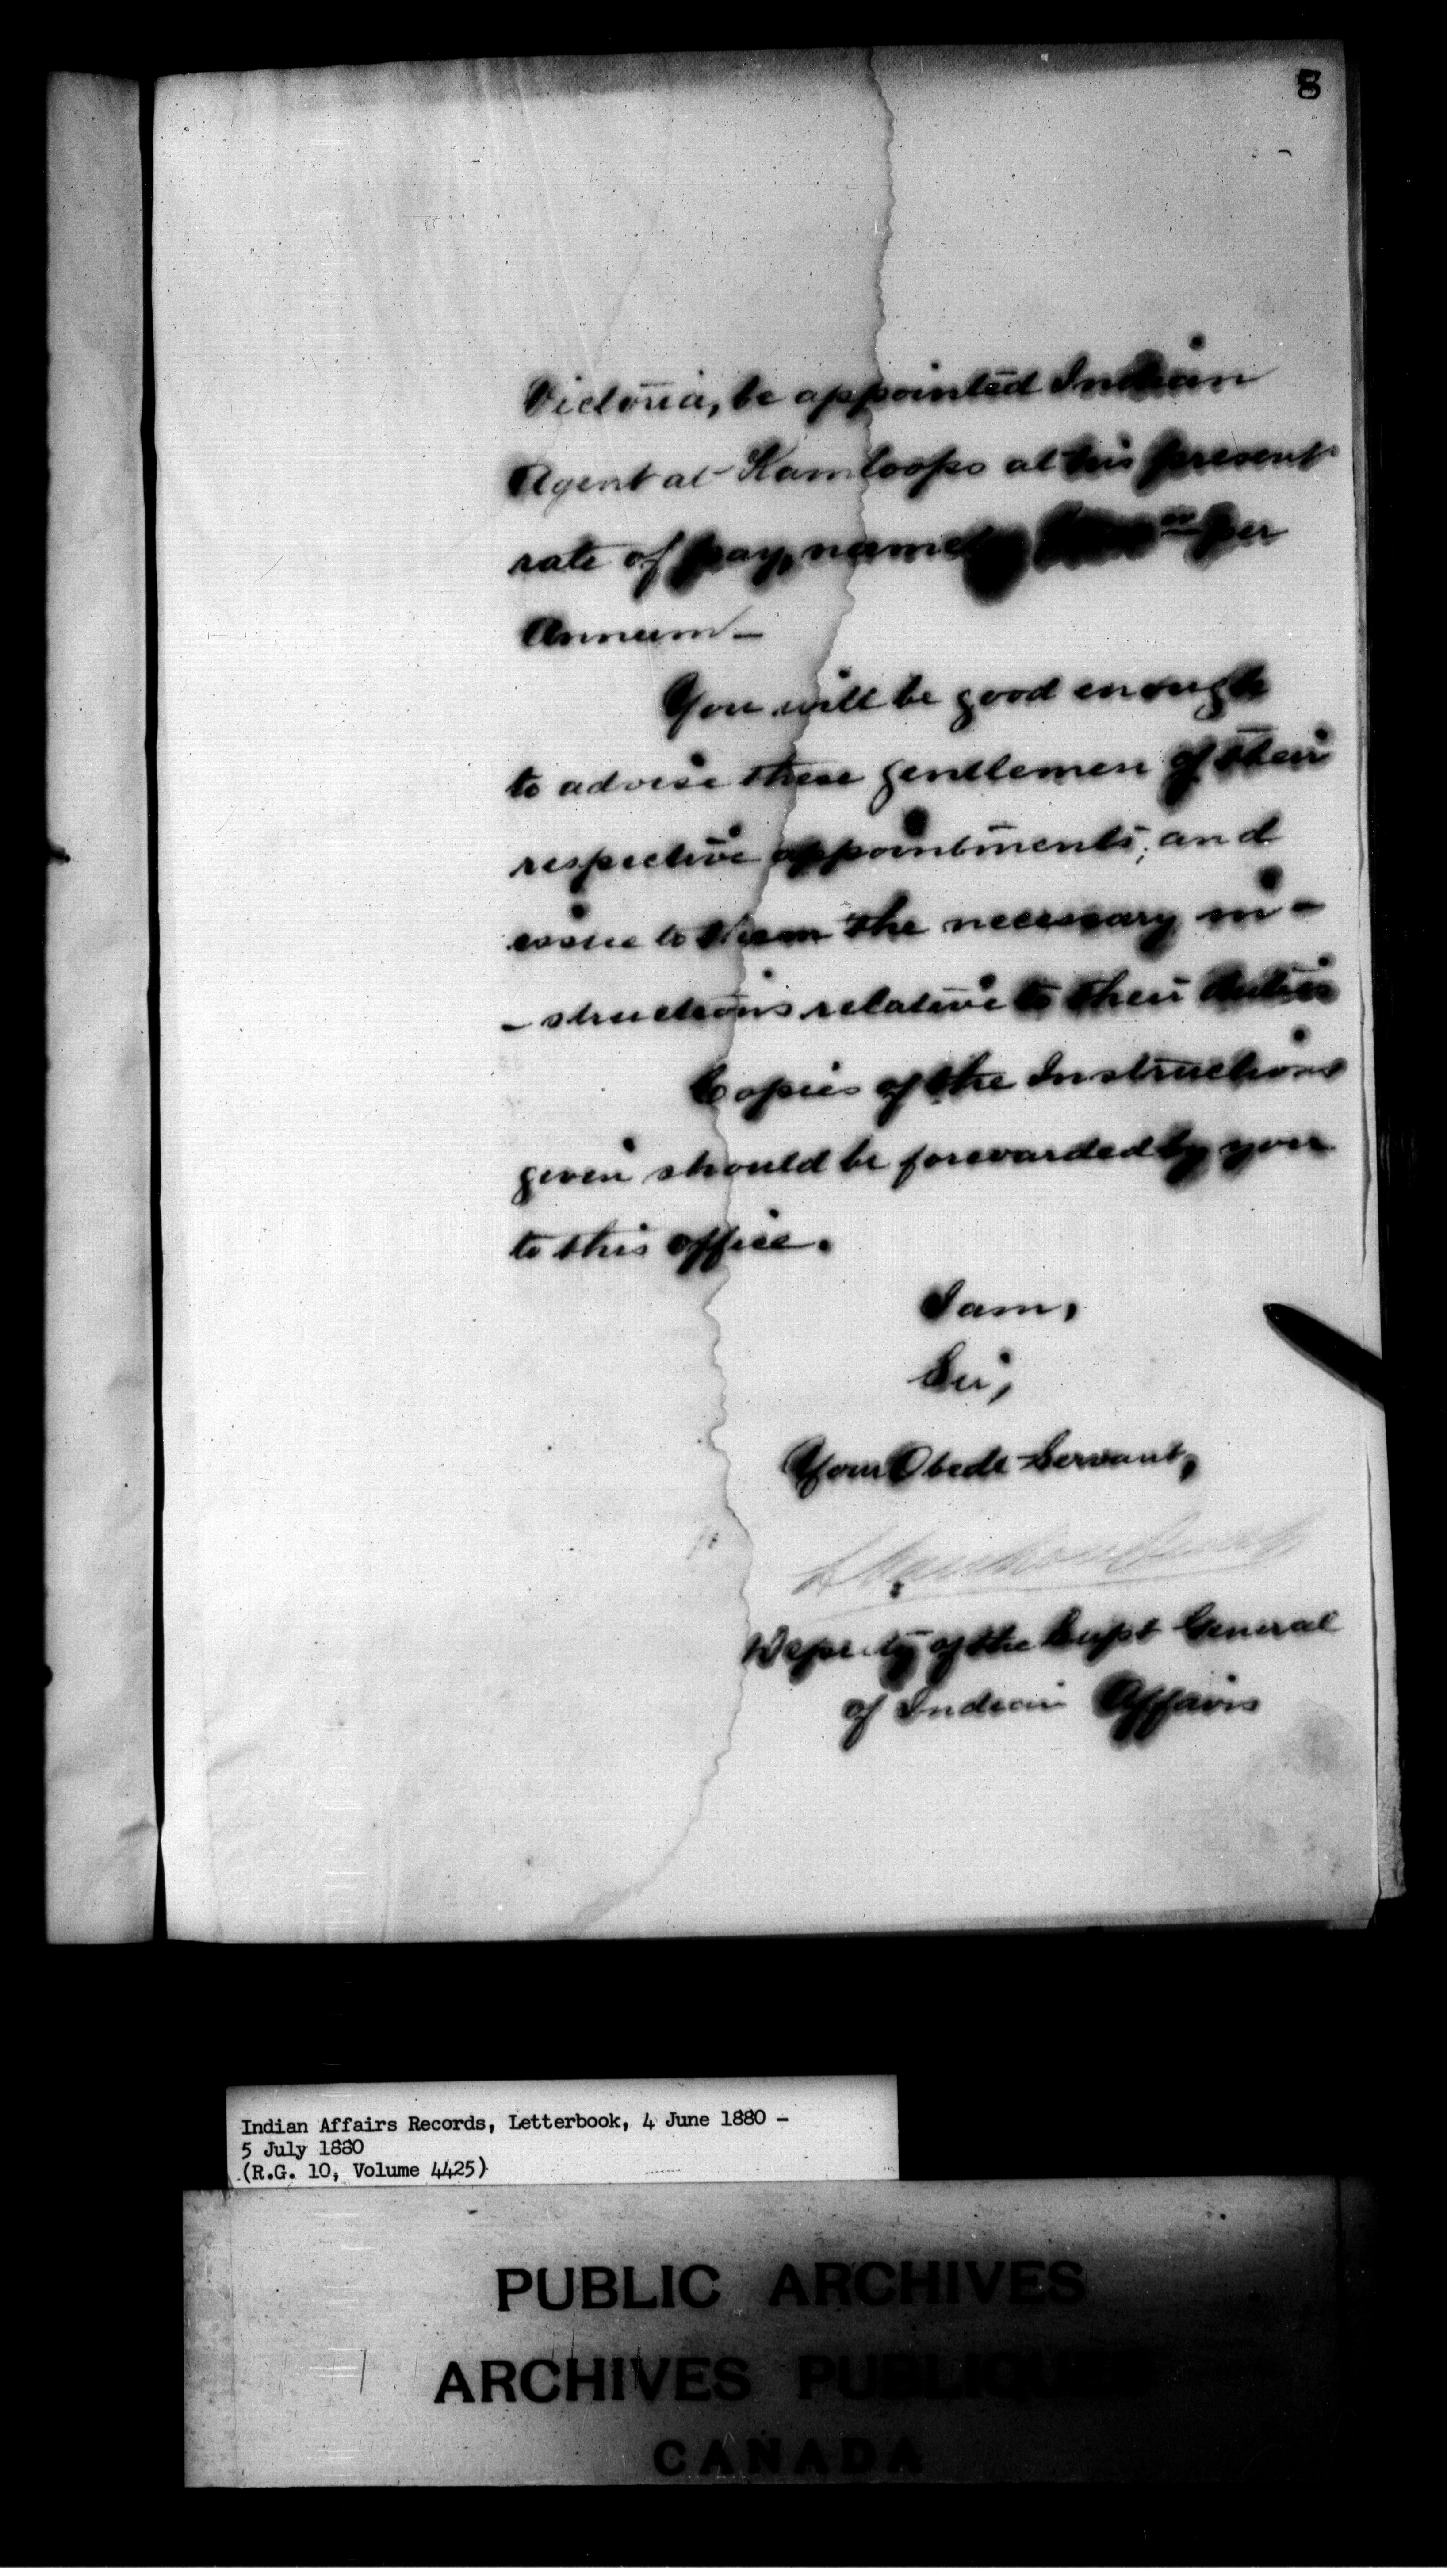 8
Victoria, be appointed Indian
Agent at Kamloops at his present
rate of pay, namely per
Annum —
You will be good enough
to advise these gentlemen of their
respective appointments, and
issue to them the necessary in-
-structions relative to their duties
Copies of the Instructions
given should be forwarded by you
to this office.
I am,
Sir,
Your Obedt Servant,
Deputy of the Supt General
of Indian Affairs
Indian Affairs Records, Letterbook, 4 June 1880 -
5 July 1880
(R.G. 10, Volume 4425)
PUBLIC ARCHIVES
ARCHIVES PUBLIQUES
CANADA